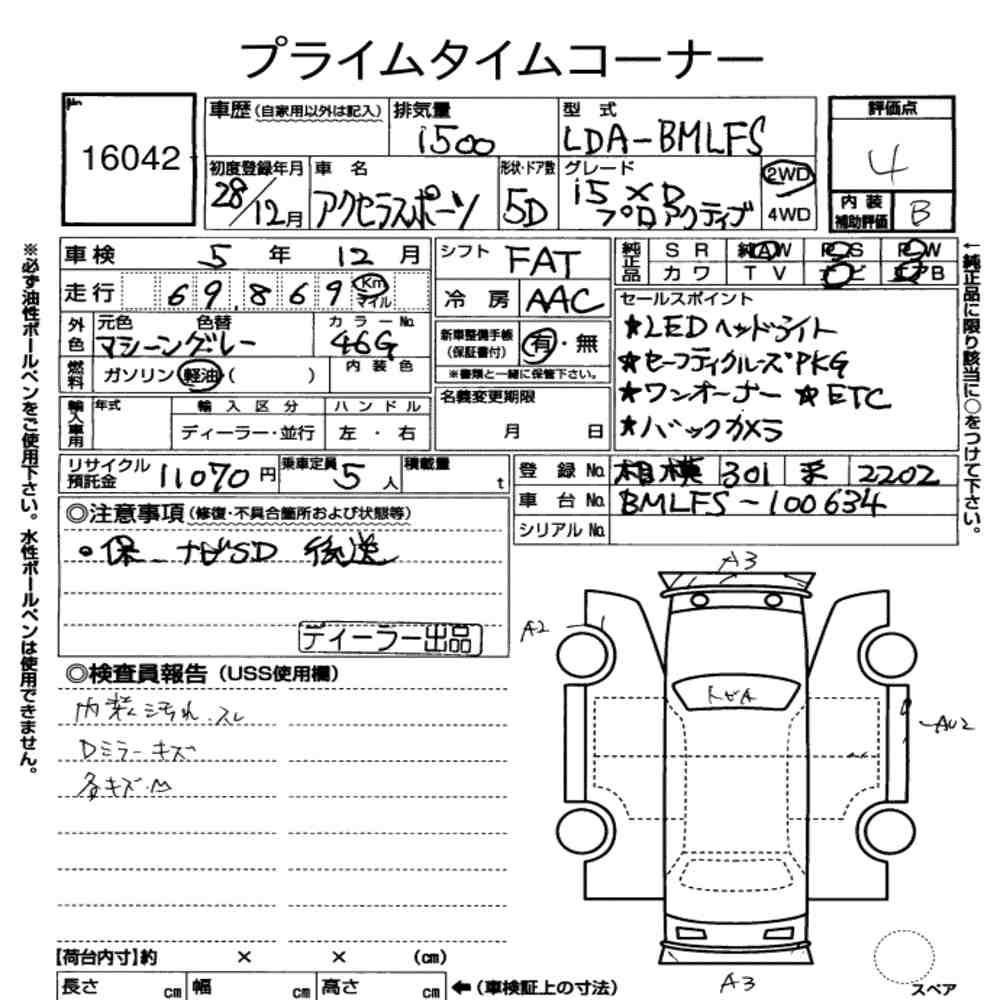 プライムタイムコーナー
16042
車歴(自家用以外は記入)
排気量
1500
型 式
LDA-BMLFS
評価点
4
初度登録年月
28/12月
車 名
アクセラスポーツ
形状・ドア数
5D
グレード
15 XD
プロアクティブ
2WD
4WD
内 装
補助評価
B
車検 5 年 12 月
シフト FAT
純正品
S R
純AW
P S
P W
カワ
T V
ナビ
エアB
走行 69,869 Km
マイル
冷房 AAC
セールスポイント
★LEDヘッドライト
★セーフティクルーズPKG
★ワンオーナー ★ETC
★バックカメラ
外色
元色 色替
マシーングレー
カラーNo.
46G
新車整備手帳
(保証書付)
有・無
※書類と一緒に保管下さい。
燃料
ガソリン 軽油( )
内装色
名義変更期限
月 日
輸入車用
年式
輸入区分
ディーラー・並行
ハンドル
左・右
リサイクル
預託金
11070円
乗車定員
5人
積載量
t
登録No. 相模 301 2202
車台No. BMLFS-100634
シリアルNo.
◎注意事項(修復・不具合箇所および状態等)
・保_ナビSD 後送
ディーラー出品
◎検査員報告(USS使用欄)
内装汚れ.スレ
Dミラーキズ
各キズ.凹
A3
A2
トビA
AU2
A3
スペア
【荷台内寸】約 × × (cm)
長さ cm
幅 cm
高さ cm
←(車検証上の寸法)
※必ず油性ボールペンをご使用下さい。水性ボールペンは使用できません。
←純正品に限り該当に○をつけて下さい。